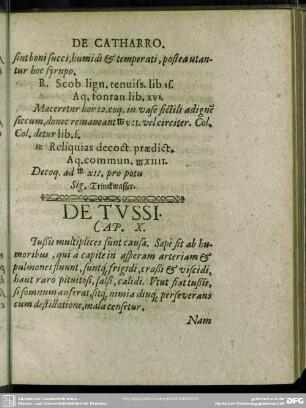 DE CATHARRO.
sint boni succi, humidi & temperati, postea utan-
tur hoc syrupo.
R. Scob lign. tenuiss. lib. is.
Aq. fontan lib. xvi.
Maceretur hor 12. coq. in vase fictili ad igne
siccum, donec remaneant VII. vel circiter. Col.
Col. detur lib. s.
Reliquias decoct. prædict.
Aq. commun. XIIII.
Decoq. ad XII. pro potu
Sig. Trinckwasser.
DE TVSSI.
CAP. X.
Tussis multiplices sunt causæ. Sæpè sit ab hu-
moribus, qui a capite in asperam arteriam &
pulmones fluunt, suntq; frigidi, crassi & viscidi,
haut raro pituitosi, falsi, calidi. Vtut fiat tussis,
si somnum auferat, sitq; nimia diuq; perseverans
cum destillatione, mala censetur.
Nam